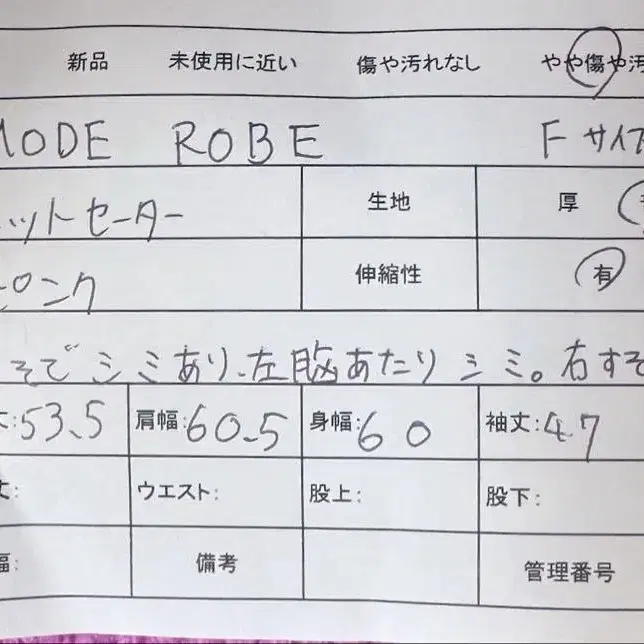 新品 未使用に近い 傷や汚れなし やや傷や汚
MODE ROBE Fサイズ
ニットセーター 生地 厚
ピンク 伸縮性 有
そでシミあり、左脳あたりシミ。右すそ
丈:53.5 肩幅:60.5 身幅:60 袖丈:47
丈: ウエスト: 股上: 股下:
幅: 備考 管理番号